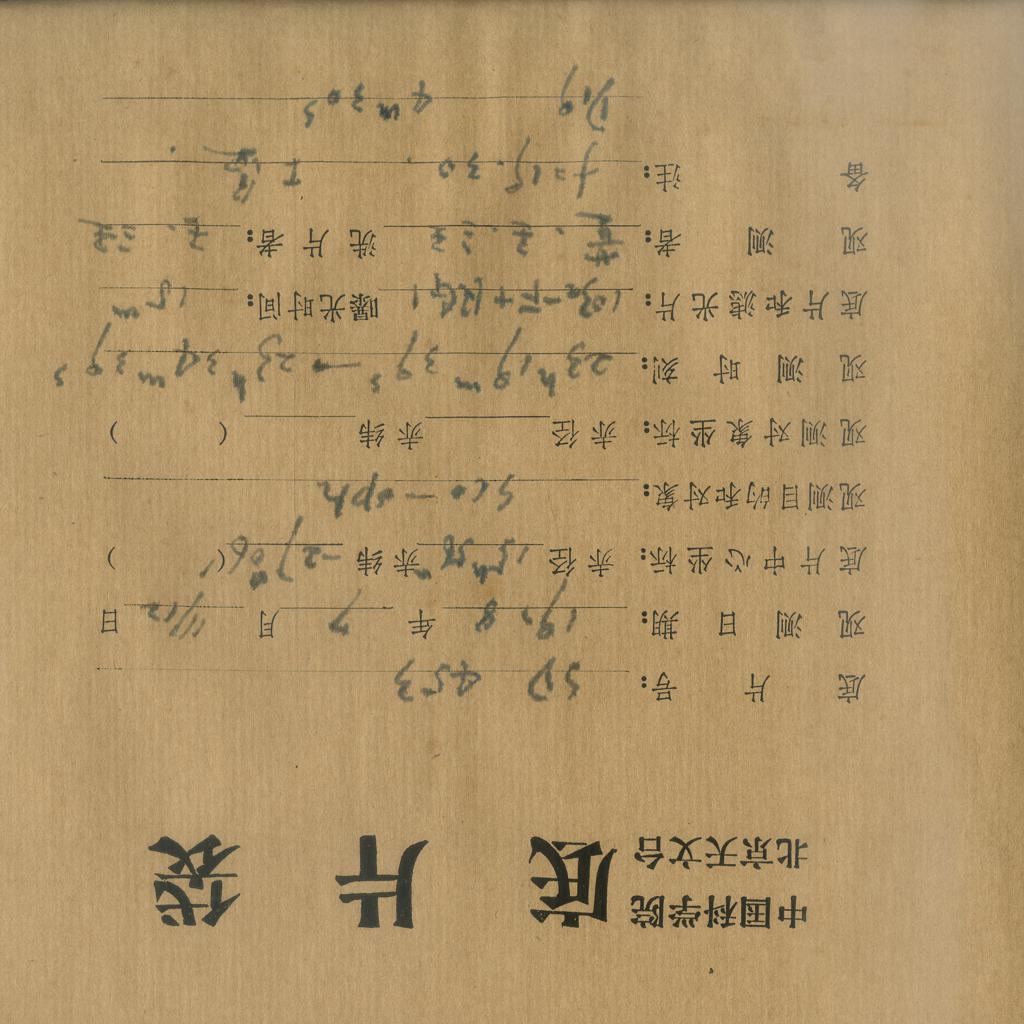 中国科学院
北京天文台
底片袋
底片号: SD 453
观测日期: 1978年7月11/12日
底片中心坐标: 赤径 15ʰ56ᵐ 赤纬 -27°06′ ( )
观测目的和对象: Sco-oph
观测对象坐标: 赤径 赤纬 ( )
观测时刻: 23ʰ19ᵐ39ˢ—23ʰ34ᵐ39ˢ
底片和滤光片: 103a-F+RG1 曝光时间: 15ᵐ
观测者: 黄. 王. 汪 洗片者: 王. 汪
备注: f=15.30.
4ᵐ30ˢ D19